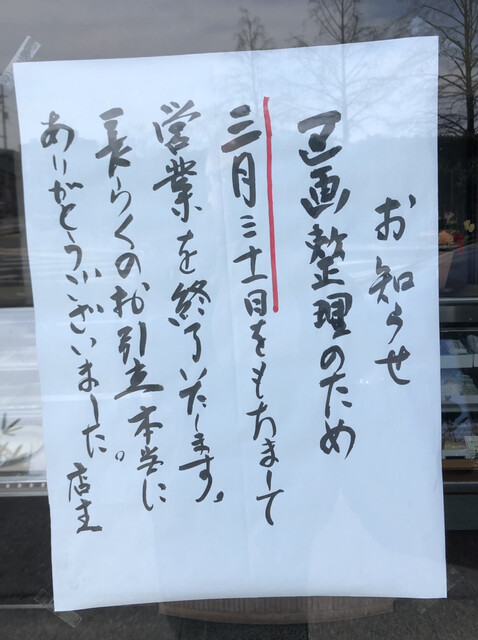 お知らせ
区画整理のため
三月三十一日をもちまして
営業を終了いたします。
長らくのお引立本当に
ありがとうございました。店主